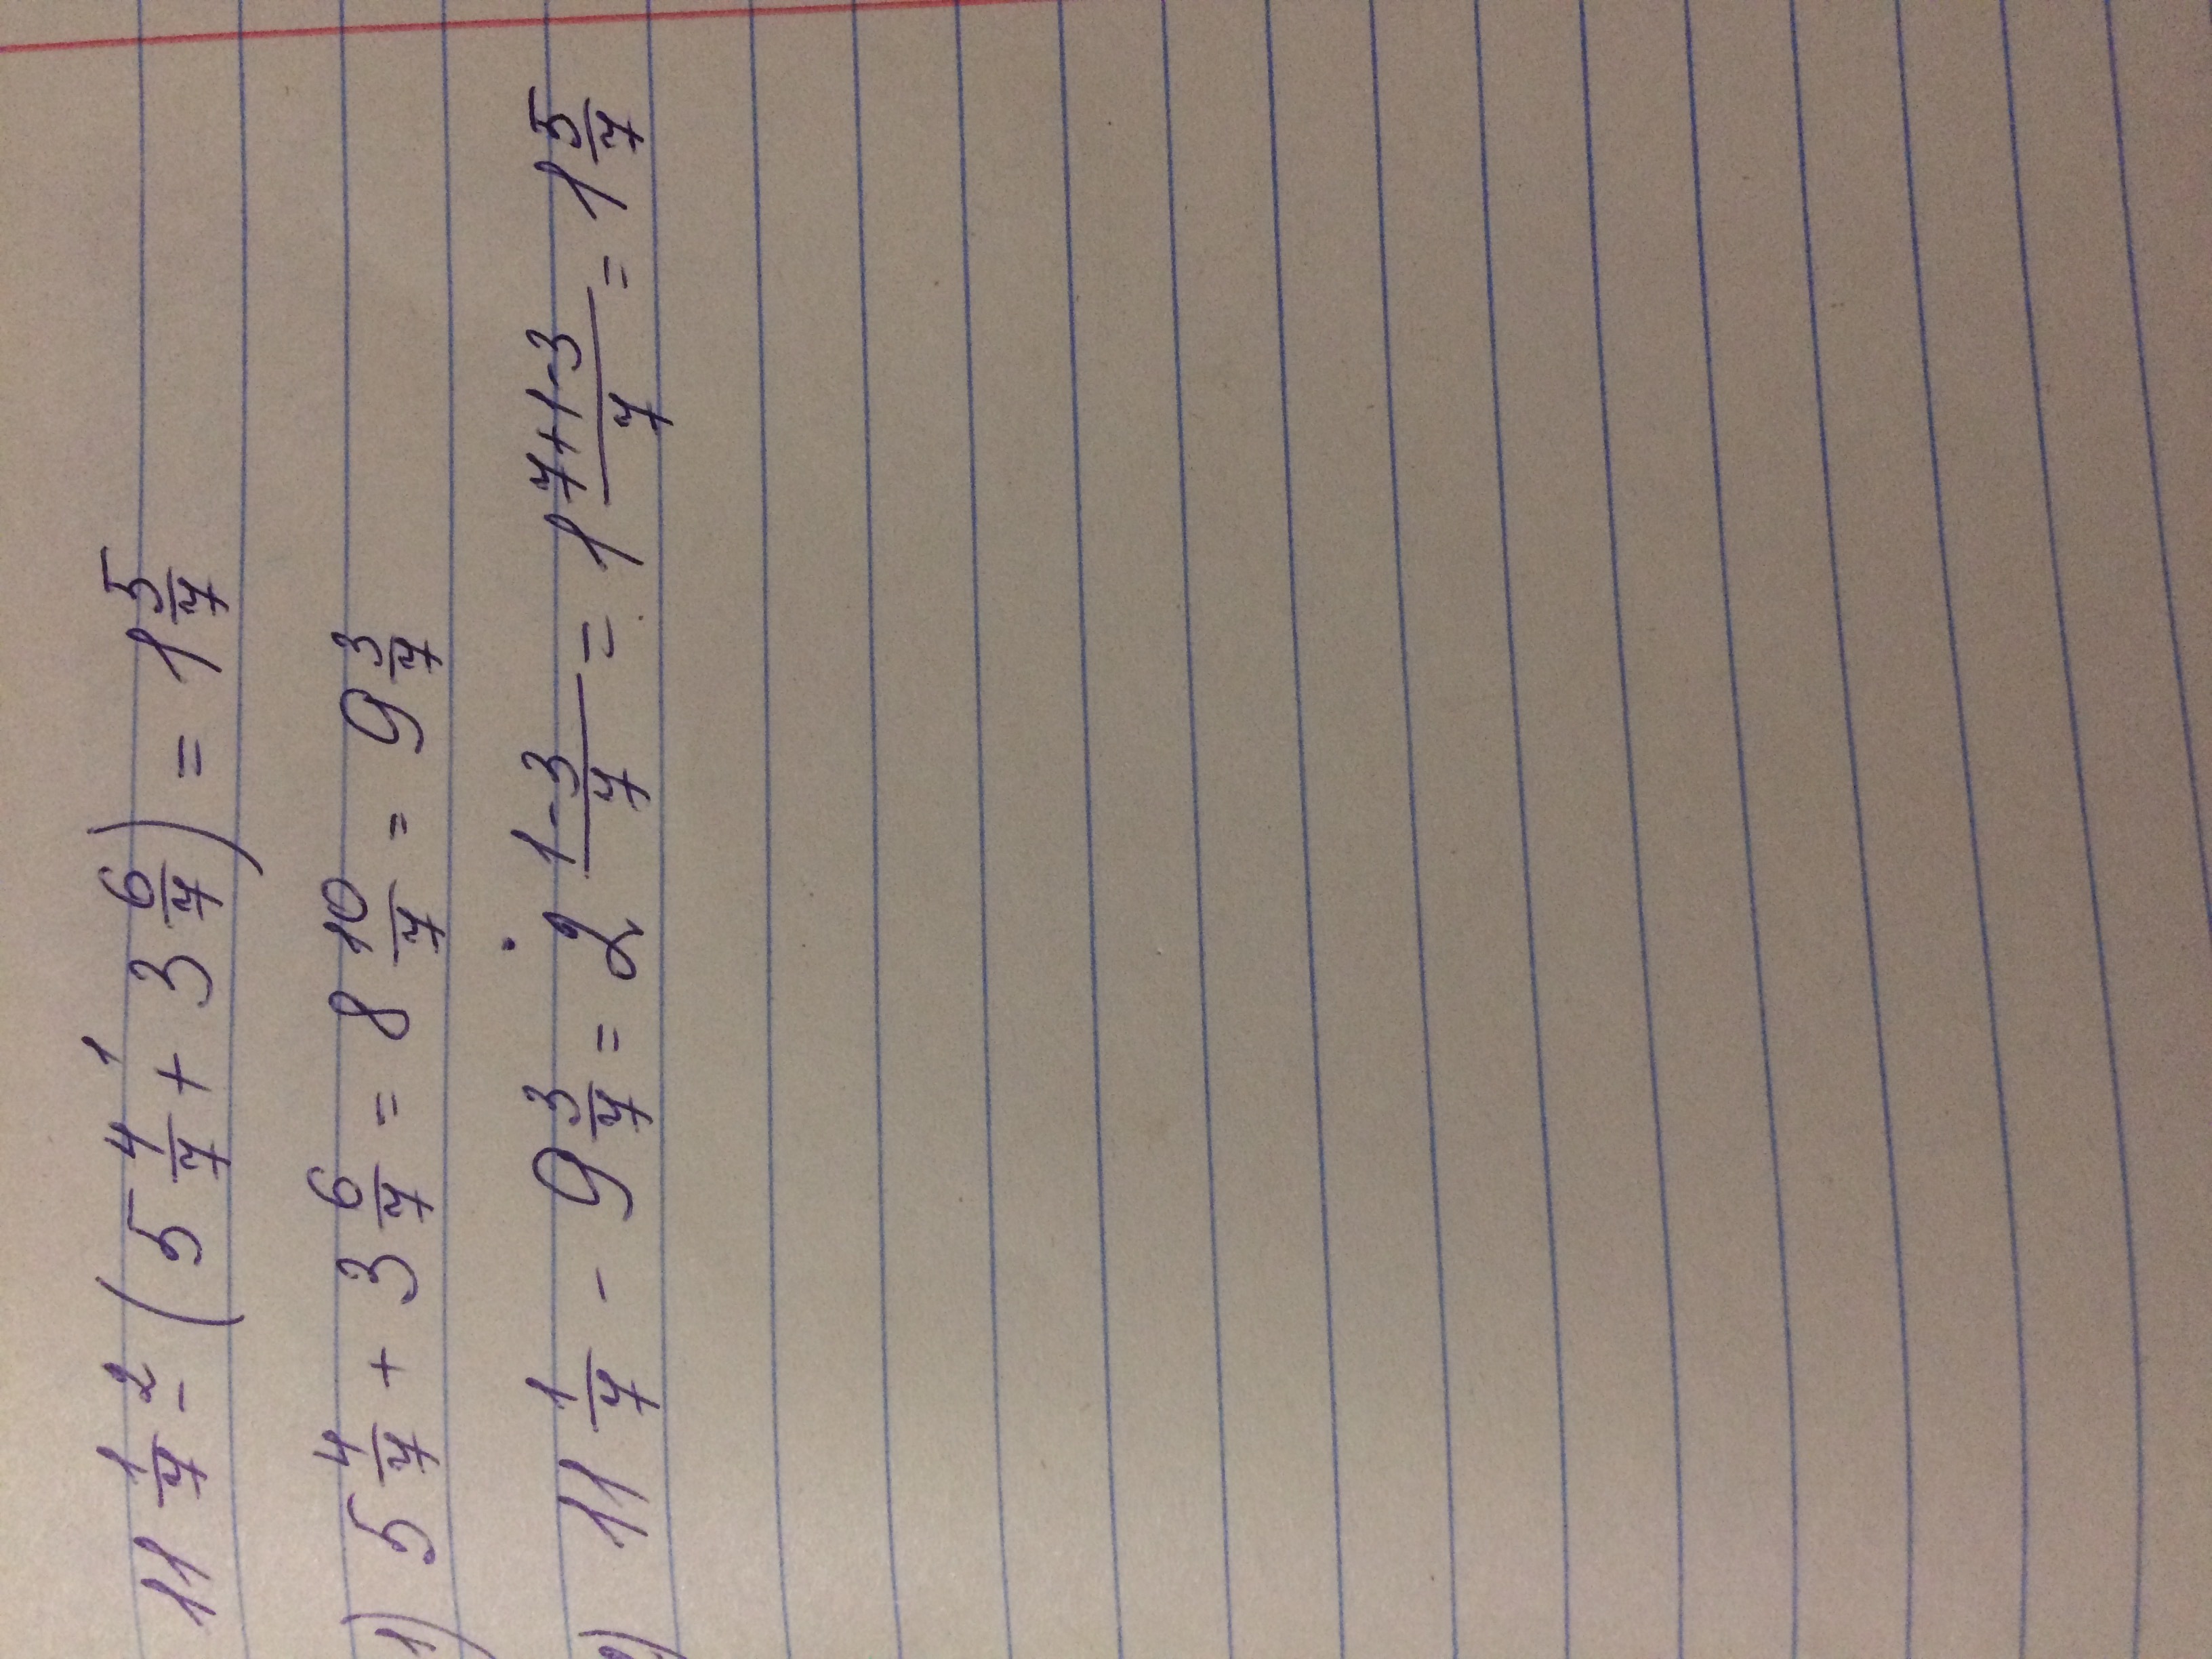 11 1/7 -² (5 4/7 +¹ 3 6/7) = 1 5/7
1) 5 4/7 + 3 6/7 = 8 10/7 = 9 3/7
2) 11 1/7 - 9 3/7 = 2 (1-3)/7 = 1 (7+1-3)/7 = 1 5/7